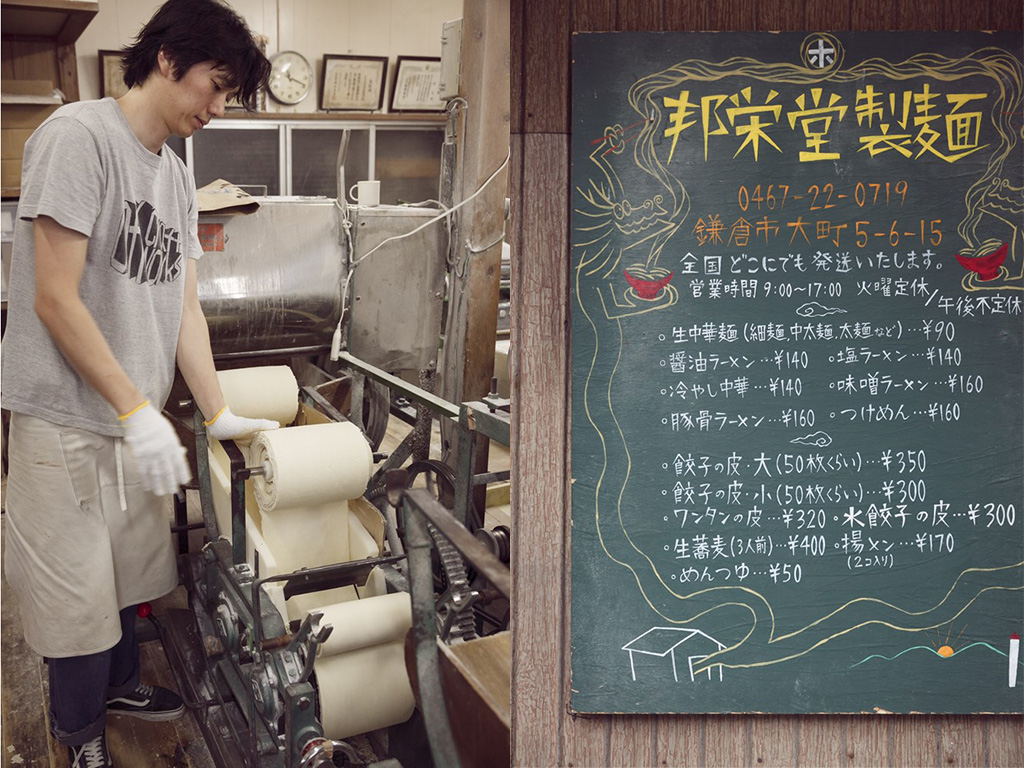 ホ
邦栄堂製麺
0467-22-0719
鎌倉市大町5-6-15
全国どこにでも発送いたします。
営業時間 9:00〜17:00 火曜定休/午後不定休
・生中華麺(細麺,中太麺,太麺など)…¥90
・醤油ラーメン…¥140 ・塩ラーメン…¥140
・冷やし中華…¥140 ・味噌ラーメン…¥160
・豚骨ラーメン…¥160 ・つけめん…¥160
・餃子の皮・大(50枚くらい)…¥350
・餃子の皮・小(50枚くらい)…¥300
・ワンタンの皮…¥320 ・水餃子の皮…¥300
・生蕎麦(3人前)…¥400 ・揚メン…¥170
(2コ入り)
・めんつゆ…¥50